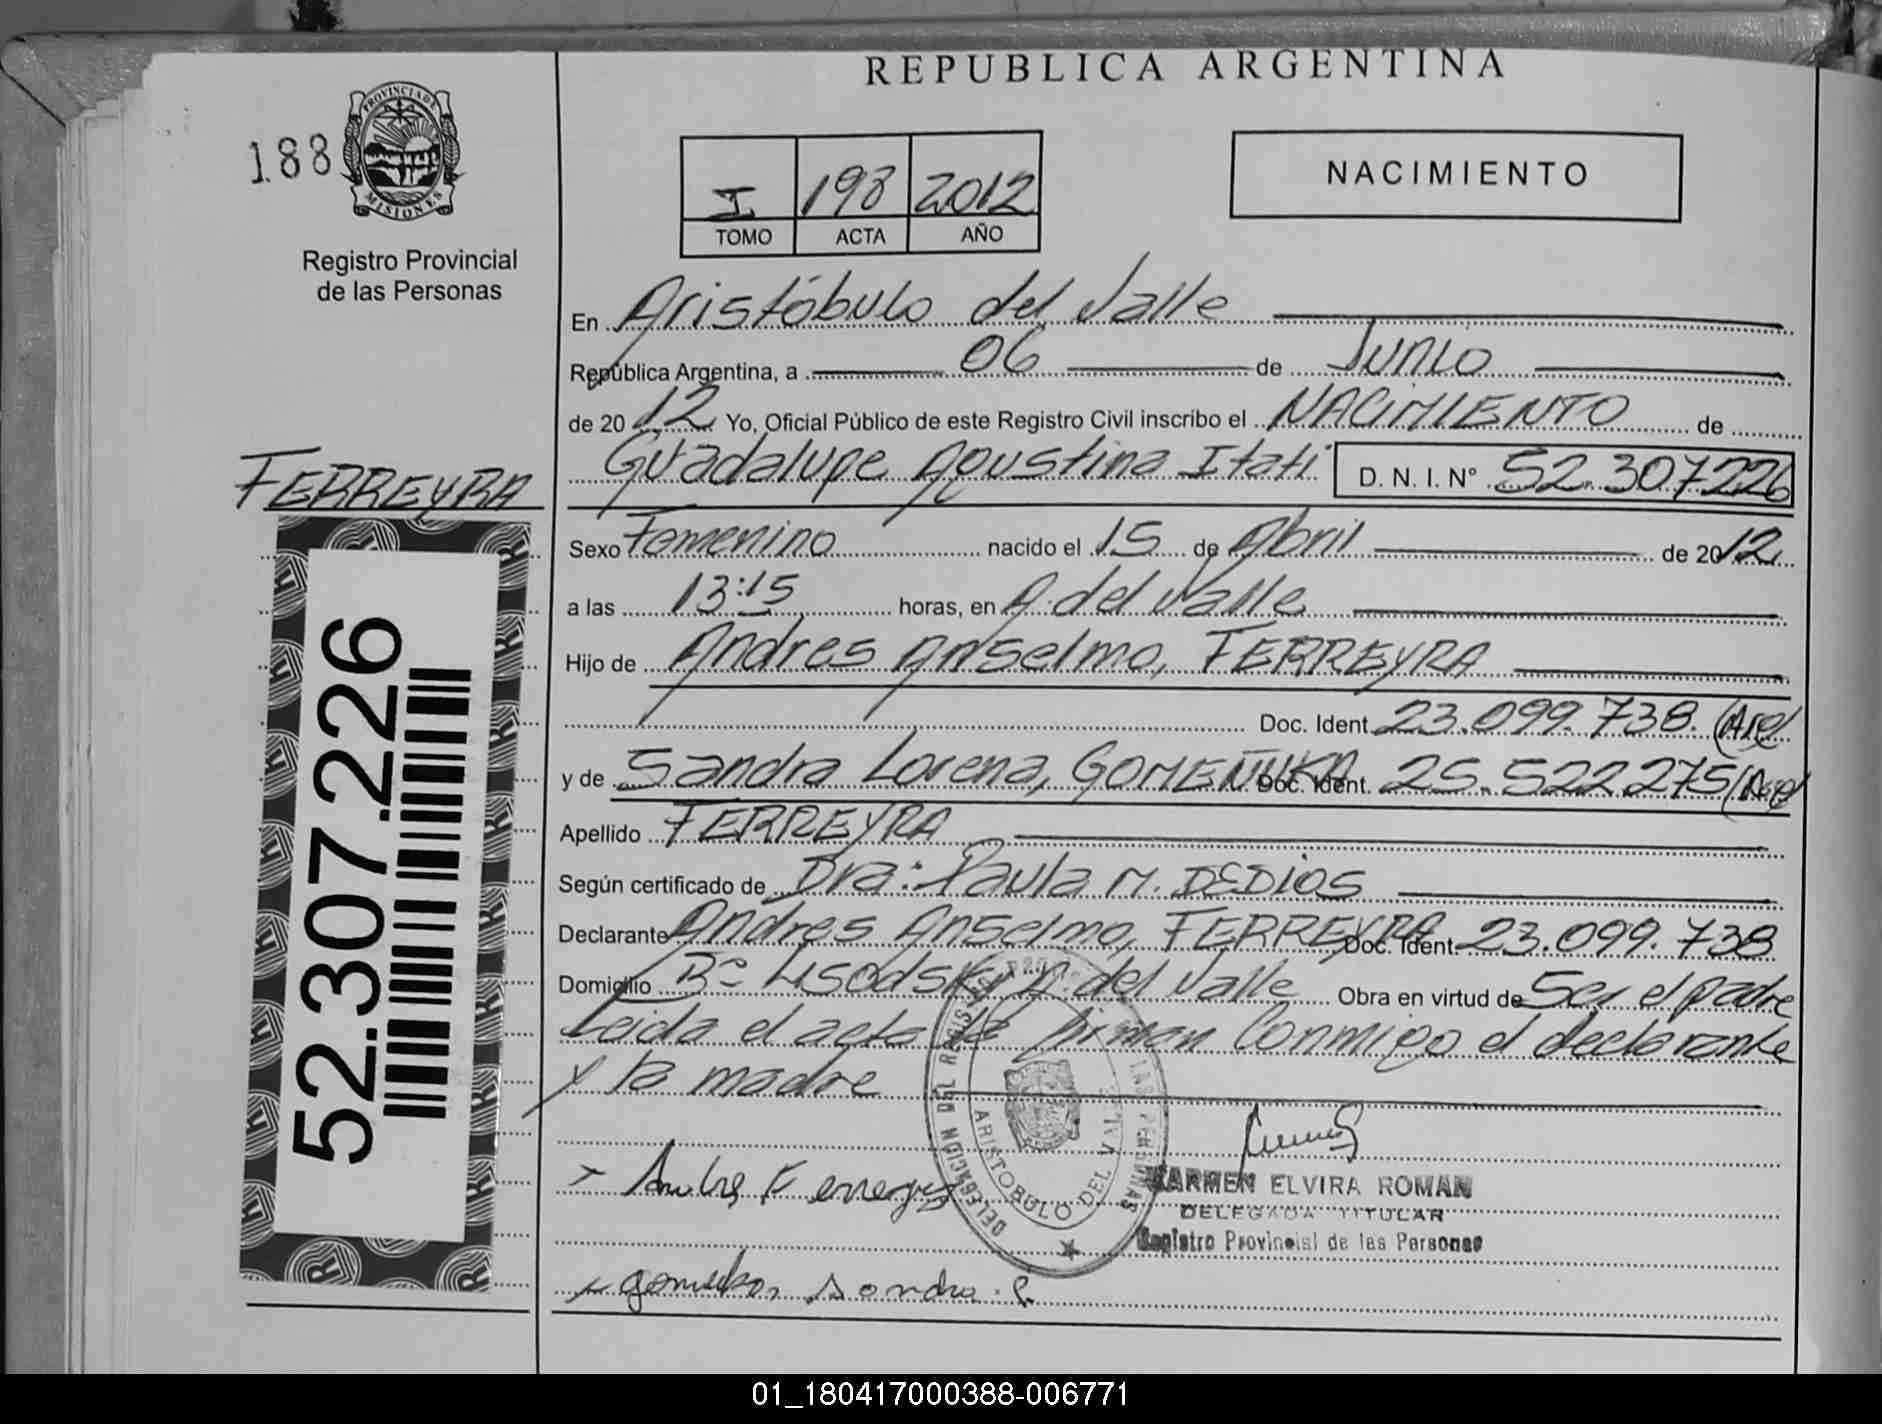 REPUBLICA ARGENTINA
188
PROVINCIA DE
MISIONES
Registro Provincial
de las Personas
I 198 2012
TOMO ACTA AÑO
NACIMIENTO
En Aristóbulo del Valle
República Argentina, a 06 de Junio
de 2012 Yo, Oficial Público de este Registro Civil inscribo el NACIMIENTO de
FERREYRA
Guadalupe Agustina Itatí D. N. I. Nº 52.307226
Sexo Femenino nacido el 15 de Abril de 2012
a las 13:15 horas, en A. del Valle
Hijo de Andres Anselmo, FERREYRA
Doc. Ident. 23.099.738. (Arg)
y de Sandra Lorena, GOMEÑUKA Doc. Ident. 25.522275 (Arg)
Apellido FERREYRA
Según certificado de Dra: Paula M. DEDIOS
Declarante Andres Anselmo, FERREYRA Doc. Ident. 23.099.738
Domicilio Bº Lisodsky A. del Valle Obra en virtud de Ser el padre
Leida el acta la firman Conmigo el declarante
y la madre
52.307.226
DELEGACION DEL REGISTRO LAS PERSONAS
ARISTOBULO DEL VALLE
CARMEN ELVIRA ROMAN
DELEGADA TITULAR
Registro Provincial de las Personas
Ferreyra
Sandra
01_180417000388-006771